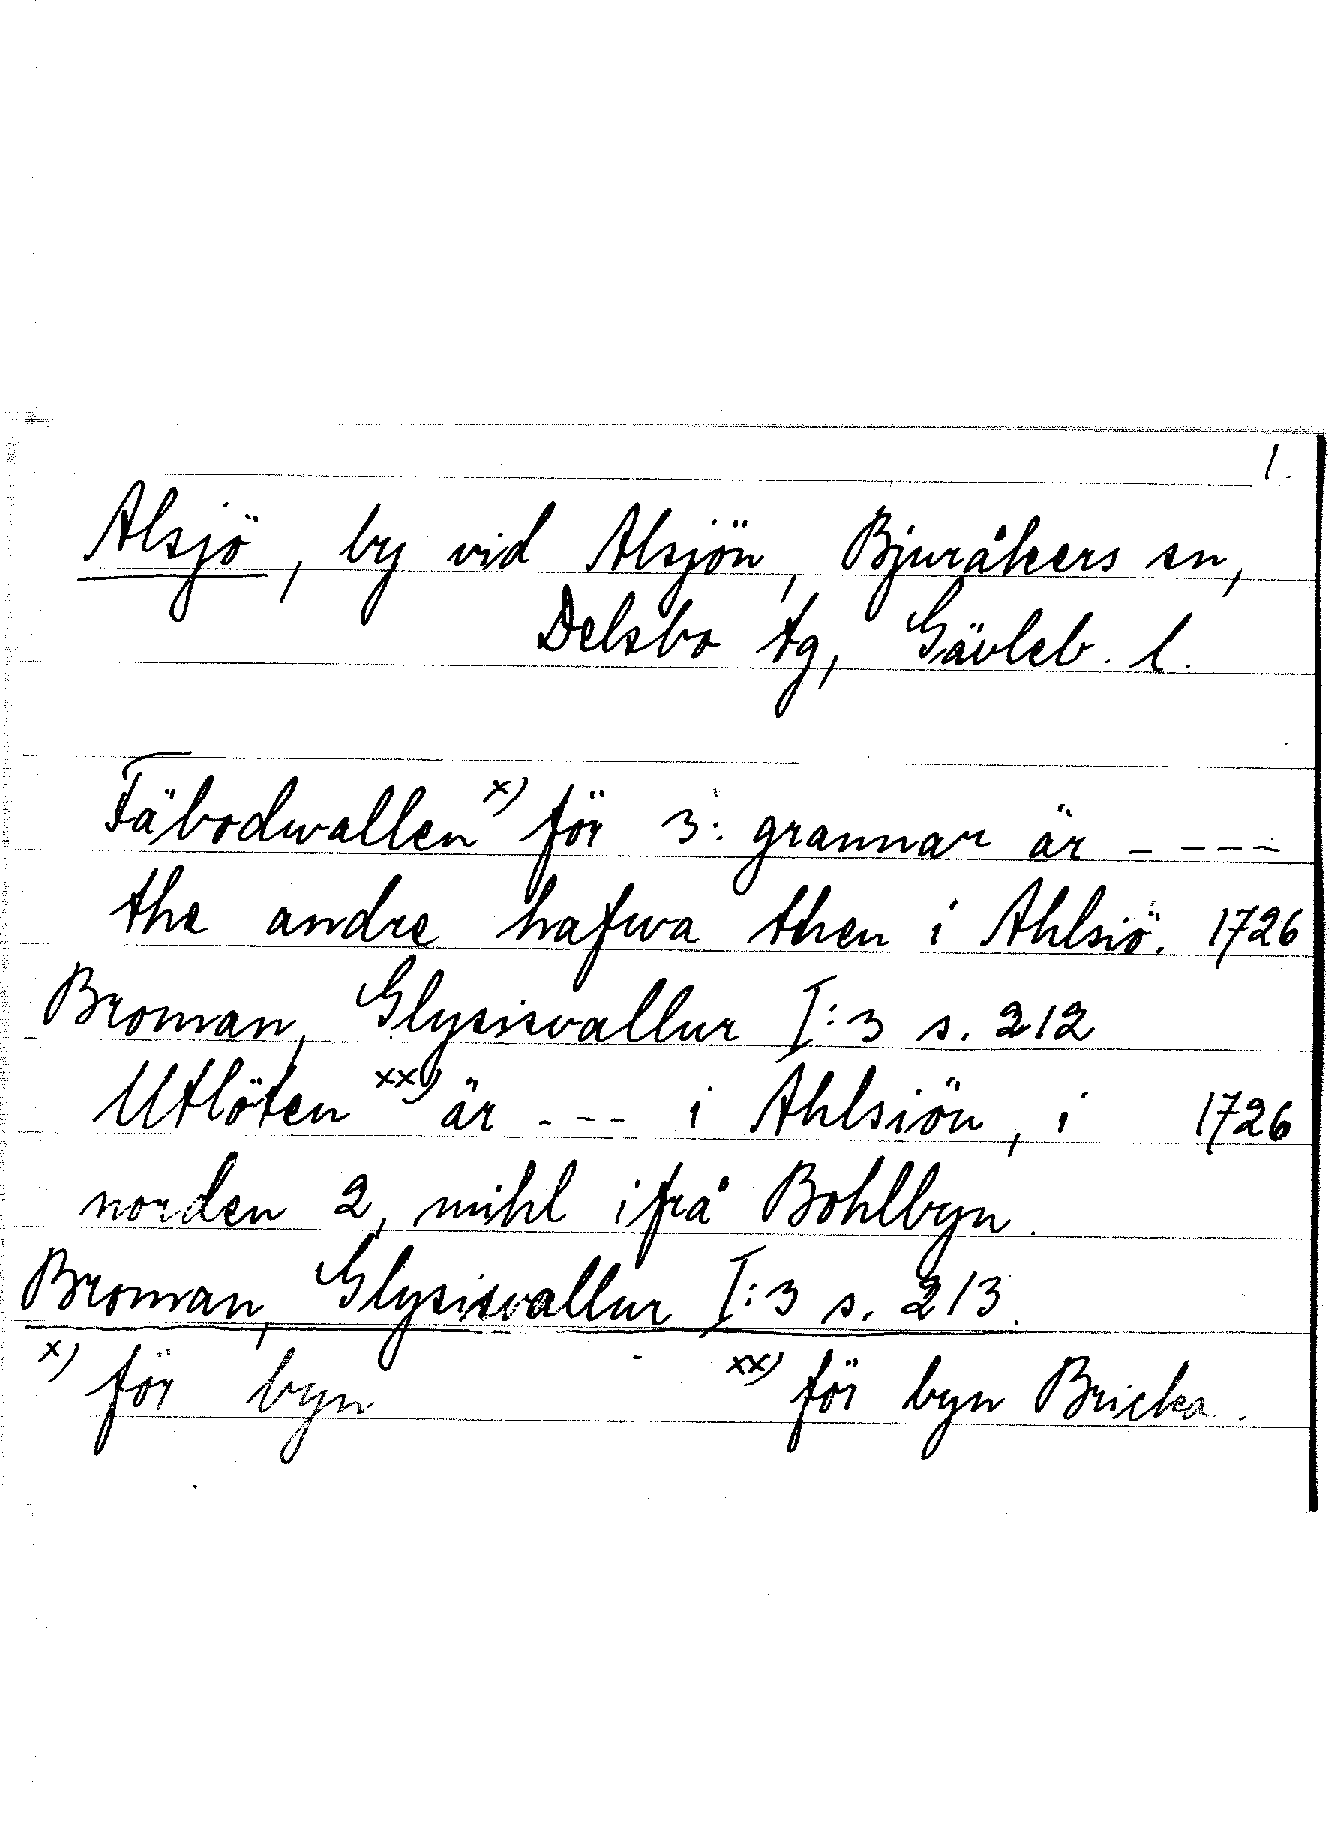 1.
Alsjö, by vid Alsjön, Bjuråkers sn,
Delsbo tg, Gävleb. l.
Fäbodwallen x) för 3: grannar är ----
the andre hafwa then i Ahlsiö. 1726
Broman, Glysisvallur I:3 s. 212
Utlöten xx) är --- i Ahlsiön, i 1726
norden 2, mihl ifrå Bohlbyn.
Broman, Glysisvallur I:3 s. 213.
x) för byn - xx) för byn Bricka.